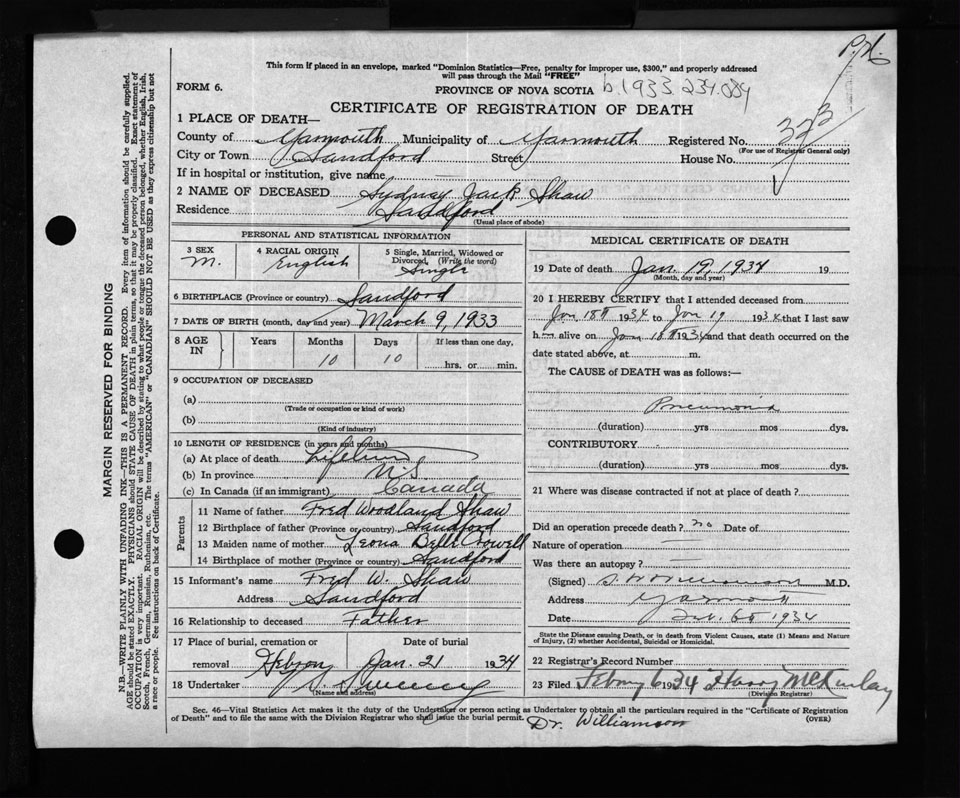 P.N.
This form if placed in an envelope, marked "Dominion Statistics—Free, penalty for improper use, $300," and properly addressed
will pass through the Mail "FREE"
FORM 6.
PROVINCE OF NOVA SCOTIA b.1933 234.084
CERTIFICATE OF REGISTRATION OF DEATH
1 PLACE OF DEATH—
County of Yarmouth Municipality of Yarmouth Registered No. 323
(For use of Registrar General only)
City or Town Sandford Street House No.
If in hospital or institution, give name
2 NAME OF DECEASED Sydney Jack Shaw
Residence Sandford
(Usual place of abode)
PERSONAL AND STATISTICAL INFORMATION
3 SEX 4 RACIAL ORIGIN 5 Single, Married, Widowed or
Divorced, (Write the word)
M. English Single
6 BIRTHPLACE (Province or country) Sandford
7 DATE OF BIRTH (month, day and year) March 9, 1933
8 AGE IN Years Months Days If less than one day,
10 10 hrs. or min.
9 OCCUPATION OF DECEASED
(a)
(Trade or occupation or kind of work)
(b)
(Kind of industry)
10 LENGTH OF RESIDENCE (in years and months)
(a) At place of death Lifetime
(b) In province N.S
(c) In Canada (if an immigrant) Canada
Parents
11 Name of father Fred Woodland Shaw
12 Birthplace of father (Province or country) Sandford
13 Maiden name of mother Leona Bell Crowell
14 Birthplace of mother (Province or country) Sandford
15 Informant's name Fred W. Shaw
Address Sandford
16 Relationship to deceased Father
17 Place of burial, cremation or Date of burial
removal Hebron Jan. 21 1934
18 Undertaker
(Name and address)
MEDICAL CERTIFICATE OF DEATH
19 Date of death Jan. 19, 1934 19
(Month, day and year)
20 I HEREBY CERTIFY that I attended deceased from
Jan 18th 1934 to Jan 19 1934 that I last saw
h alive on Jan 18th 1934 and that death occurred on the
date stated above, at m.
The CAUSE of DEATH was as follows:—
Pneumonia
(duration) yrs mos dys.
CONTRIBUTORY.
(duration) yrs mos dys.
21 Where was disease contracted if not at place of death?
Did an operation precede death? no Date of
Nature of operation
Was there an autopsy?
(Signed) Williamson M.D.
Address Yarmouth
Date Feb. 6th 1934
State the Disease causing Death, or in death from Violent Causes, state (1) Means and Nature
of Injury, (2) whether Accidental, Suicidal or Homicidal.
22 Registrar's Record Number
23 Filed Febry 6 1934 Harry McKinlay
(Division Registrar)
Sec. 46—Vital Statistics Act makes it the duty of the Undertaker or person acting as Undertaker to obtain all the particulars required in the "Certificate of Registration
of Death" and to file the same with the Division Registrar who shall issue the burial permit. (OVER)
Dr. Williamson
MARGIN RESERVED FOR BINDING
N.B.—WRITE PLAINLY WITH UNFADING INK—THIS IS A PERMANENT RECORD. Every item of information should be carefully supplied.
AGE should be stated EXACTLY. PHYSICIANS should STATE CAUSE OF DEATH in plain terms, so that it may be properly classified. Exact statement of
OCCUPATION is very important. RACIAL ORIGIN will be described by stating to what people or tongue the deceased person belonged, whether English, Irish,
Scotch, French, German, Russian, Ruthenian, etc. The terms "AMERICAN" or "CANADIAN" SHOULD NOT BE USED as they express citizenship but not
a race or people. See instructions on back of Certificate.